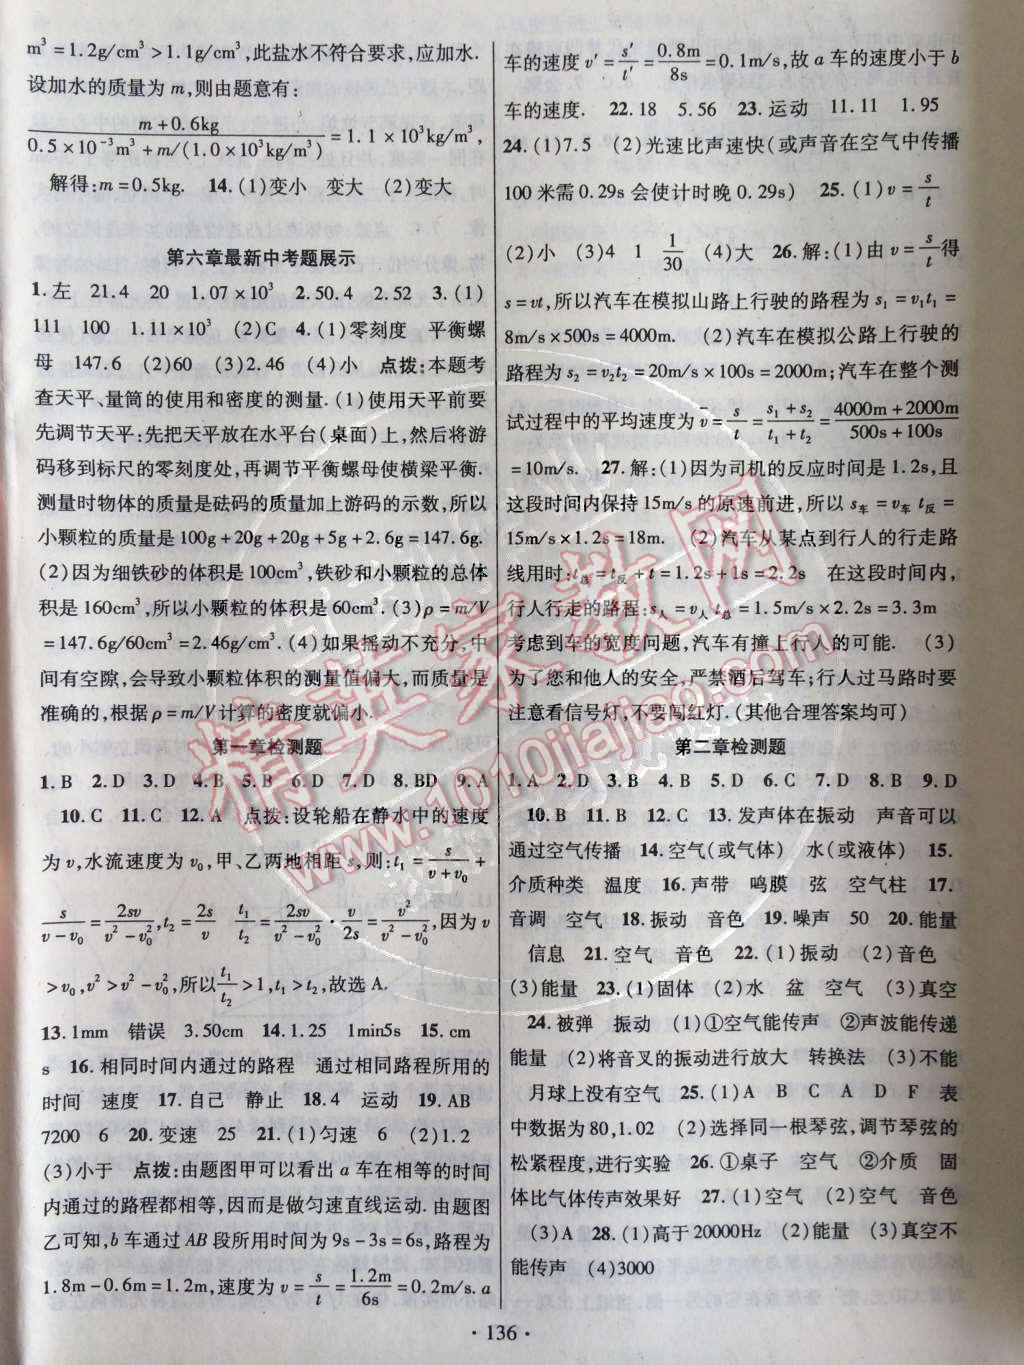 m³=1.2g/cm³>1.1g/cm³,此盐水不符合要求,应加水.
设加水的质量为m,则由题意有:
(m+0.6kg)/(0.5×10⁻³m³+m/(1.0×10³kg/m³))=1.1×10³kg/m³,
解得:m=0.5kg. 14.(1)变小 变大 (2)变大
第六章最新中考题展示
1.左 21.4 20 1.07×10³ 2.50.4 2.52 3.(1)
111 100 1.11×10³ (2)C 4.(1)零刻度 平衡螺
母 147.6 (2)60 (3)2.46 (4)小 点拨:本题考
查天平、量筒的使用和密度的测量.(1)使用天平前要
先调节天平:先把天平放在水平台(桌面)上,然后将游
码移到标尺的零刻度处,再调节平衡螺母使横梁平衡.
测量时物体的质量是砝码的质量加上游码的示数,所以
小颗粒的质量是100g+20g+20g+5g+2.6g=147.6g.
(2)因为细铁砂的体积是100cm³,铁砂和小颗粒的总体
积是160cm³,所以小颗粒的体积是60cm³.(3)ρ=m/V
=147.6g/60cm³=2.46g/cm³.(4)如果摇动不充分,中
间有空隙,会导致小颗粒体积的测量值偏大,而质量是
准确的,根据ρ=m/V计算的密度就偏小.
第一章检测题
1.B 2.D 3.D 4.B 5.B 6.D 7.D 8.BD 9.A
10.C 11.C 12.A 点拨:设轮船在静水中的速度
为v,水流速度为v₀,甲、乙两地相距s,则:t₁=s/(v+v₀)+
s/(v-v₀)=2sv/(v²-v₀²),t₂=2s/v t₁/t₂=2sv/(v²-v₀²)·v/2s=v²/(v²-v₀²),因为v
>v₀,v²>v²-v₀²,所以t₁/t₂>1,t₁>t₂,故选A.
13.1mm 错误 3.50cm 14.1.25 1min5s 15.cm
s 16.相同时间内通过的路程 通过相同路程所用的
时间 速度 17.自己 静止 18.4 运动 19.AB
7200 6 20.变速 25 21.(1)匀速 6 (2)1.2
(3)小于 点拨:由题图甲可以看出a车在相等的时间
内通过的路程都相等,因而是做匀速直线运动.由题图
乙可知,b车通过AB段所用时间为9s-3s=6s,路程为
1.8m-0.6m=1.2m,速度为v=s/t=1.2m/6s=0.2m/s.a
车的速度v′=s′/t′=0.8m/8s=0.1m/s,故a车的速度小于b
车的速度. 22.18 5.56 23.运动 11.11 1.95
24.(1)7.5 (2)光速比声速快(或声音在空气中传播
100米需0.29s会使计时晚0.29s) 25.(1)v=s/t
(2)小 (3)4 1 1/30 (4)大 26.解:(1)由v=s/t得
s=vt,所以汽车在模拟山路上行驶的路程为s₁=v₁t₁=
8m/s×500s=4000m. (2)汽车在模拟公路上行驶的
路程为s₂=v₂t₂=20m/s×100s=2000m;汽车在整个测
试过程中的平均速度为v̄=s/t=(s₁+s₂)/(t₁+t₂)=(4000m+2000m)/(500s+100s)
=10m/s. 27.解:(1)因为司机的反应时间是1.2s,且
这段时间内保持15m/s的原速前进,所以s车=v车t反=
15m/s×1.2s=18m. (2)汽车从某点到行人的行走路
线用时:t总=t反+t=1.2s+1s=2.2s 在这段时间内,
行人行走的路程:s人=v人t总=1.5m/s×2.2s=3.3m
考虑到车的宽度问题,汽车有撞上行人的可能. (3)
为了您和他人的安全,严禁酒后驾车;行人过马路时要
注意看信号灯,不要闯红灯.(其他合理答案均可)
第二章检测题
1.A 2.D 3.D 4.B 5.D 6.C 7.D 8.B 9.D
10.B 11.B 12.C 13.发声体在振动 声音可以
通过空气传播 14.空气(或气体) 水(或液体) 15.
介质种类 温度 16.声带 鸣膜 弦 空气柱 17.
音调 空气 18.振动 音色 19.噪声 50 20.能量
信息 21.空气 音色 22.(1)振动 (2)音色
(3)能量 23.(1)固体 (2)水 盆 空气 (3)真空
24.被弹 振动 (1)①空气能传声 ②声波能传递
能量 (2)将音叉的振动进行放大 转换法 (3)不能
月球上没有空气 25.(1)A B C A D F 表
中数据为80,1.02 (2)选择同一根琴弦,调节琴弦的
松紧程度,进行实验 26.①桌子 空气 ②介质 固
体比气体传声效果好 27.(1)空气 (2)空气 音色
(3)A 28.(1)高于20000Hz (2)能量 (3)真空不
能传声 (4)3000
·136·
精英家教网
www.1010jiajiao.com